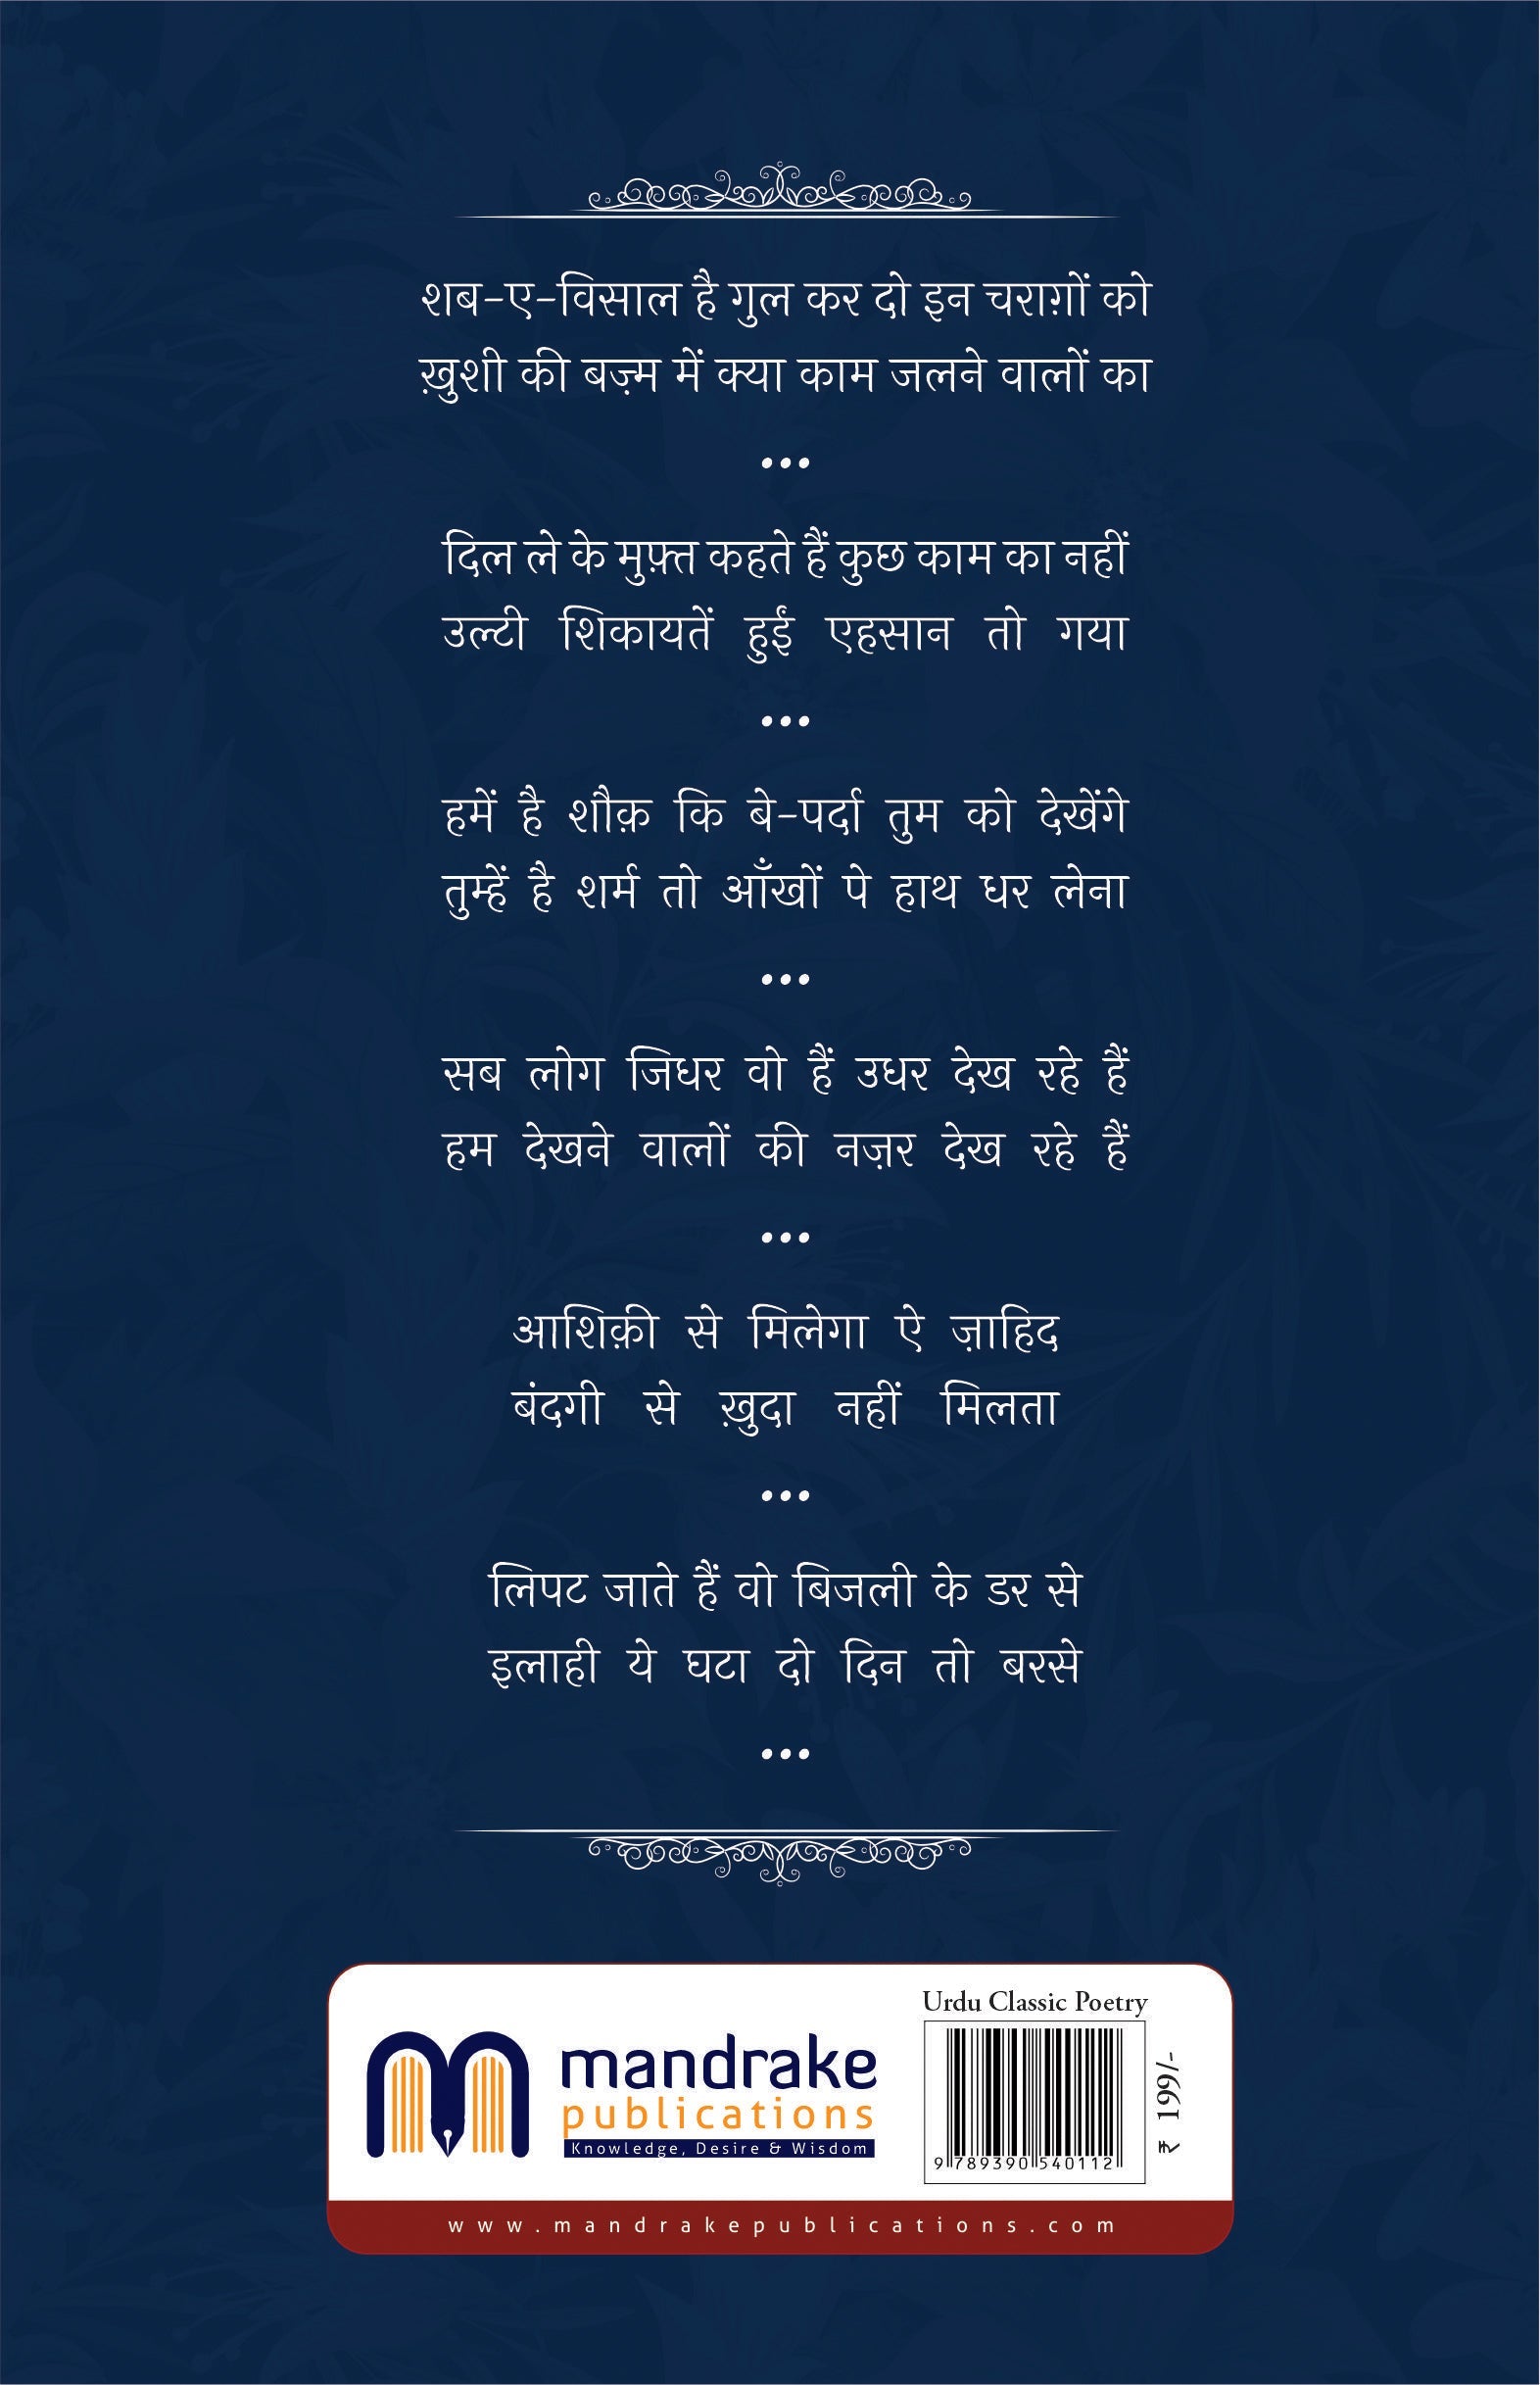 शब-ए-विसाल है गुल कर दो इन चराग़ों को
ख़ुशी की बज़्म में क्या काम जलने वालों का
•••
दिल ले के मुफ़्त कहते हैं कुछ काम का नहीं
उल्टी शिकायतें हुईं एहसान तो गया
•••
हमें है शौक़ कि बे-पर्दा तुम को देखेंगे
तुम्हें है शर्म तो आँखों पे हाथ धर लेना
•••
सब लोग जिधर वो हैं उधर देख रहे हैं
हम देखने वालों की नज़र देख रहे हैं
•••
आशिक़ी से मिलेगा ऐ ज़ाहिद
बंदगी से ख़ुदा नहीं मिलता
•••
लिपट जाते हैं वो बिजली के डर से
इलाही ये घटा दो दिन तो बरसे
•••
mandrake
publications
Knowledge, Desire & Wisdom
Urdu Classic Poetry
9 789390 540112
₹ 199/-
www.mandrakepublications.com